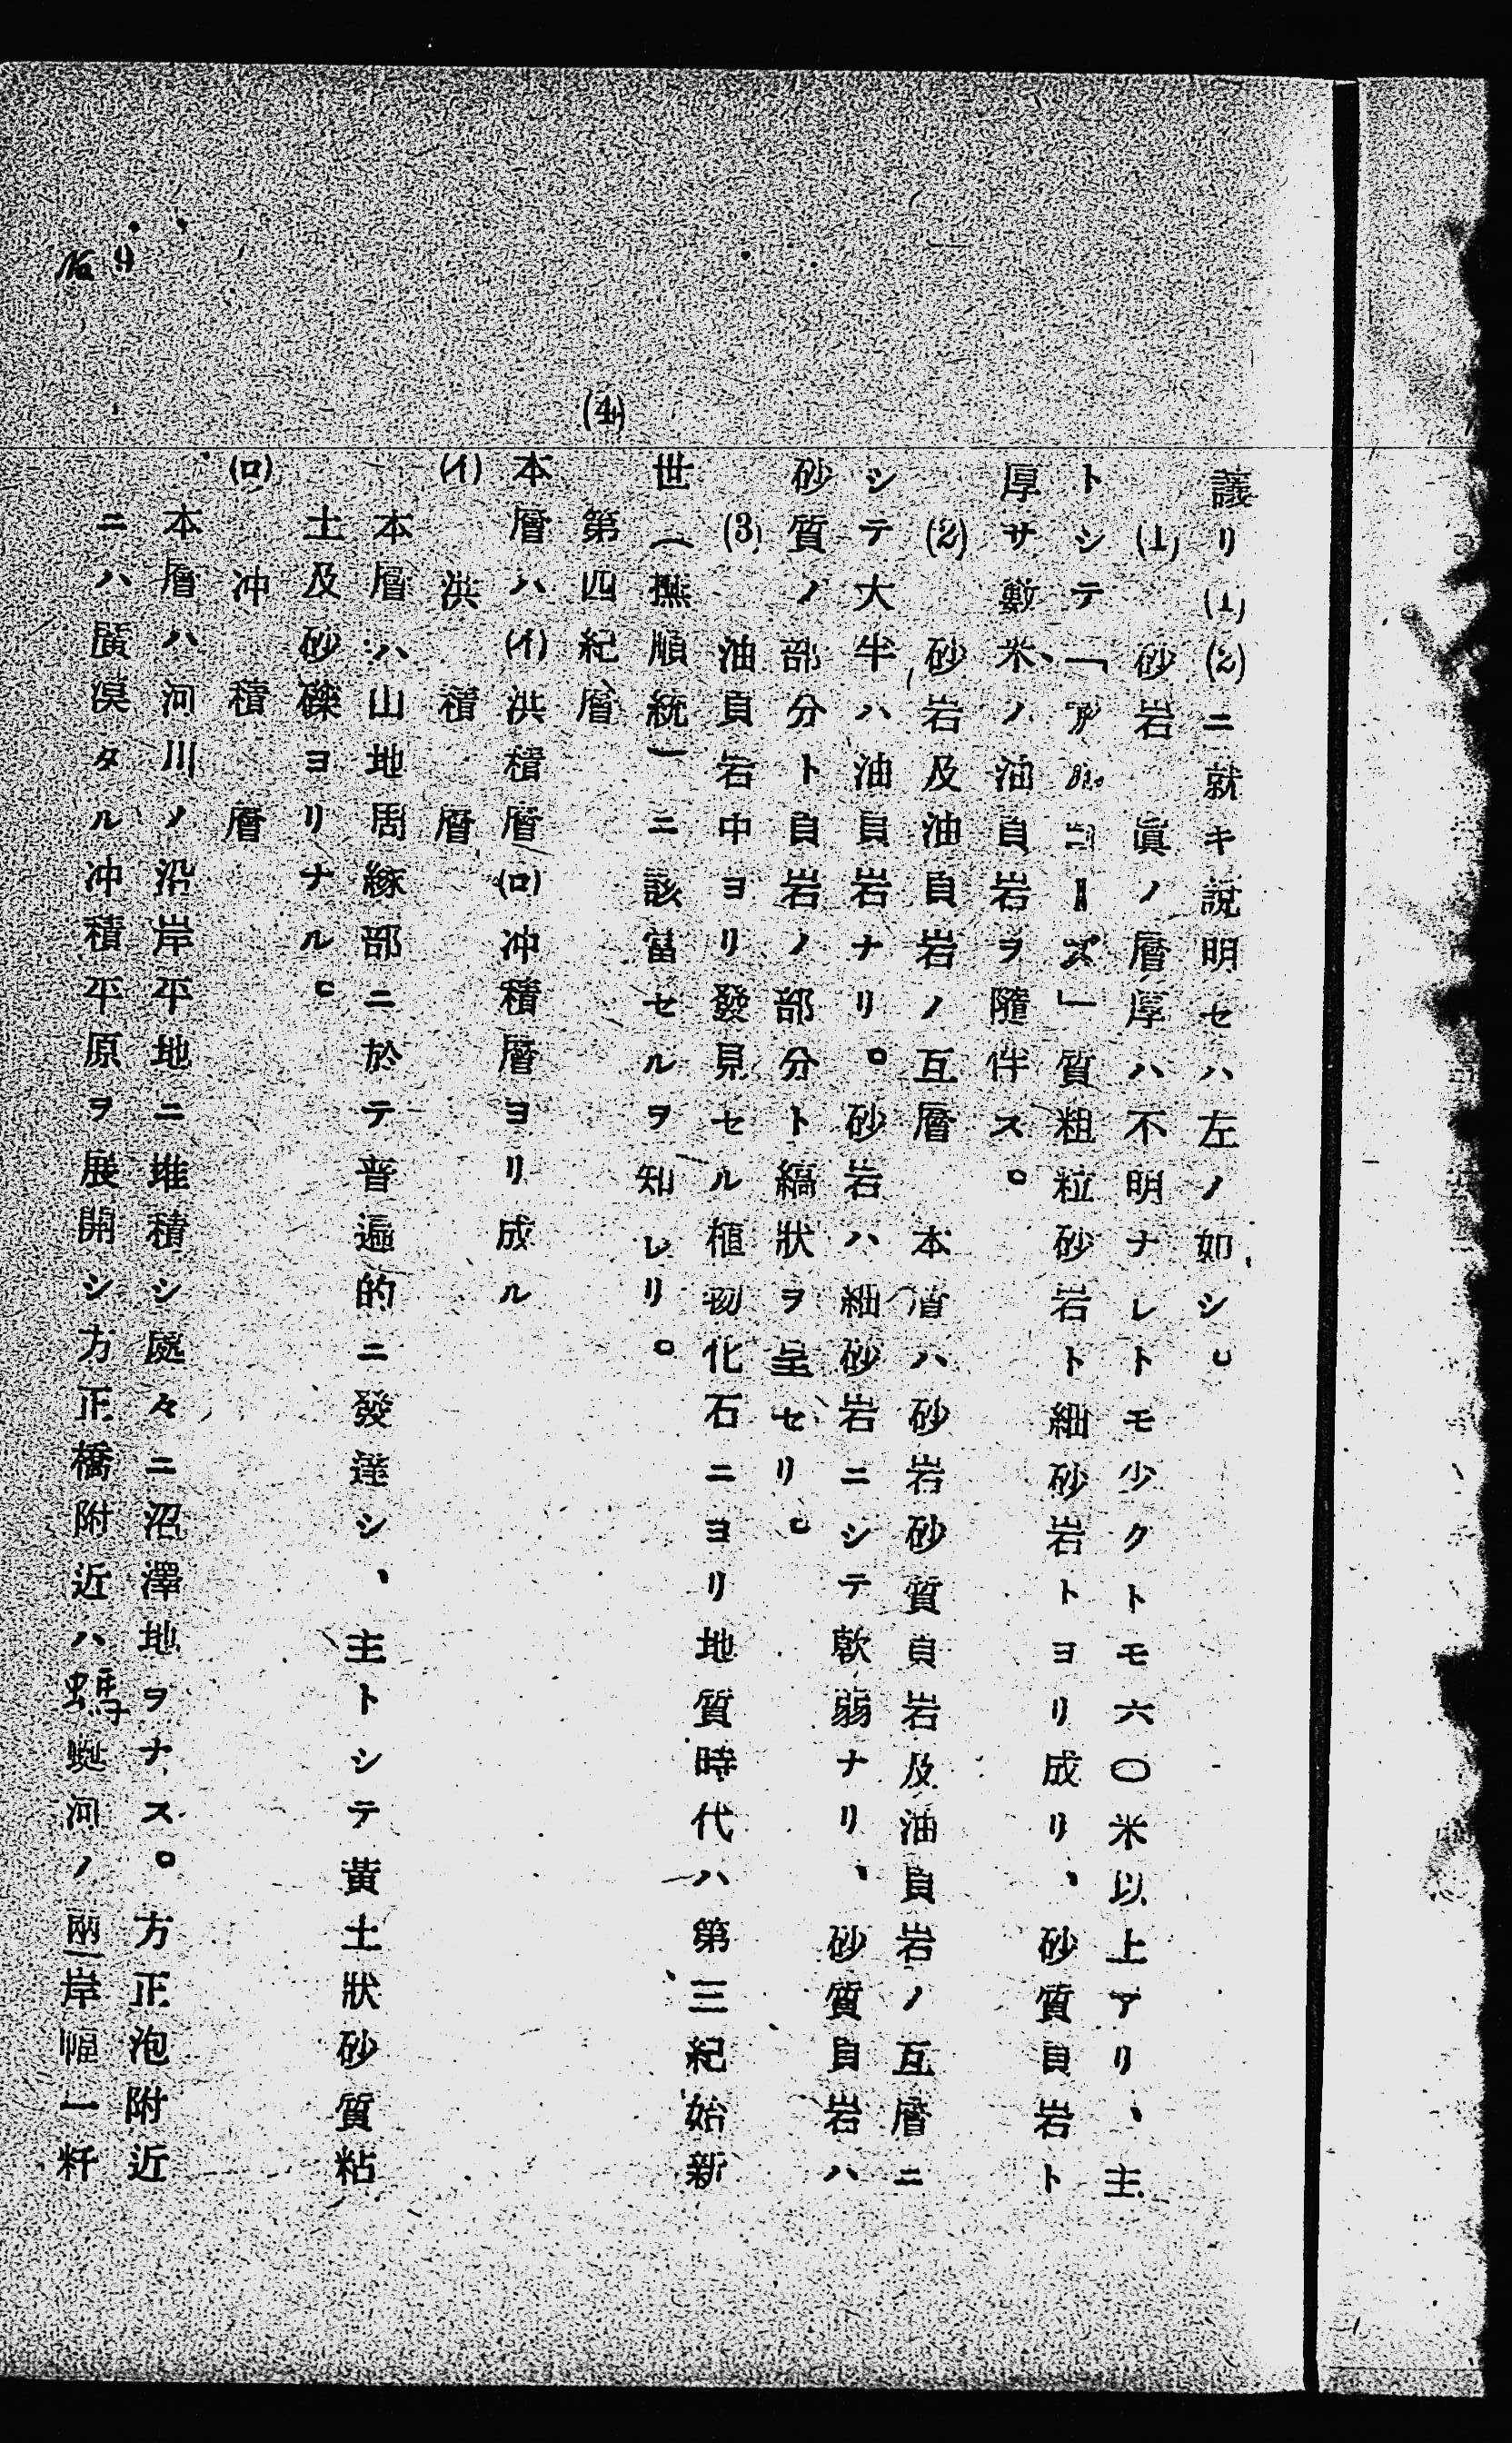 議リ(1)(2)ニ就キ說明セハ左ノ如シ。
(1) 砂岩 眞ノ層厚ハ不明ナレトモ少クトモ六〇米以上アリ、主
トシテ「アルコーズ」質粗粒砂岩ト細砂岩トヨリ成リ、砂質頁岩ト
厚サ數米ノ油頁岩ヲ隨伴ス。
(2) 砂岩及油頁岩ノ互層 本層ハ砂岩砂質頁岩及油頁岩ノ互層ニ
シテ大半ハ油頁岩ナリ。砂岩ハ細砂岩ニシテ軟弱ナリ、砂質頁岩ハ
砂質ノ部分ト頁岩ノ部分ト縞狀ヲ呈セリ。
(3) 油頁岩中ヨリ發見セル植物化石ニヨリ地質時代ハ第三紀始新
世(撫順統)ニ該當セルヲ知レリ。
(4) 第四紀層
本層ハ(イ)洪積層(ロ)冲積層ヨリ成ル
(イ) 洪積層
本層ハ山地周緣部ニ於テ普遍的ニ發達シ、主トシテ黃土狀砂質粘
土及砂礫ヨリナル。
(ロ) 冲積層
本層ハ河川ノ沿岸平地ニ堆積シ處々ニ沼澤地ヲナス。方正泡附近
ニハ廣漠タル冲積平原ヲ展開シ方正橋附近ハ螞蜒河ノ兩岸幅一粁
№ 9